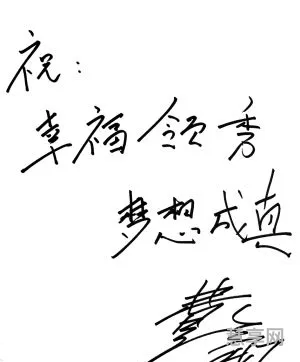 祝：
幸福领秀
梦想成真
慧享网